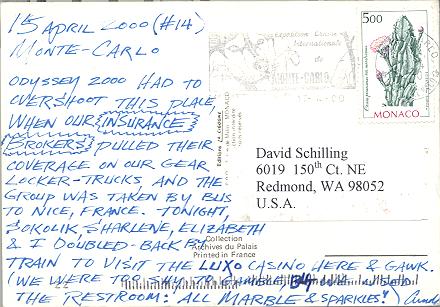 15 APRIL 2000 (#14)
MONTE-CARLO
ODYSSEY 2000 HAD TO
OVERSHOOT THIS PLACE,
WHEN OUR INSURANCE
BROKERS PULLED THEIR
COVERAGE ON OUR GEAR
LOCKER-TRUCKS, AND THE
GROUP WAS TAKEN BY BUS
TO NICE, FRANCE. TONIGHT,
SOKOLIK, SHARLENE, ELIZABETH
& I DOUBLED-BACK BY
TRAIN TO VISIT THE LUXO CASINO HERE & GAWK.
(WE WERE TOO
THE RESTROOM: ALL MARBLE & SPARKLES!)
Exposition Canine
Internationale
de
MONTE-CARLO
5,00
MONACO
David Schilling
6019 150th Ct. NE
Redmond, WA 98052
U.S.A.
Collection
Archives du Palais
Printed in France